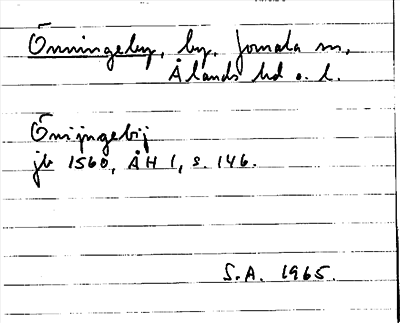 Önningeby, by, Jomala sn,
Ålands hd o. l.
Önijngebij
jb 1560, ÅH 1, s. 146.
S.A. 1965.